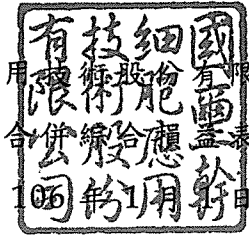 國璽幹
細胞應用
技術股份
有限公司
用技術股份有限
合併綜合損益表
106年1月 日